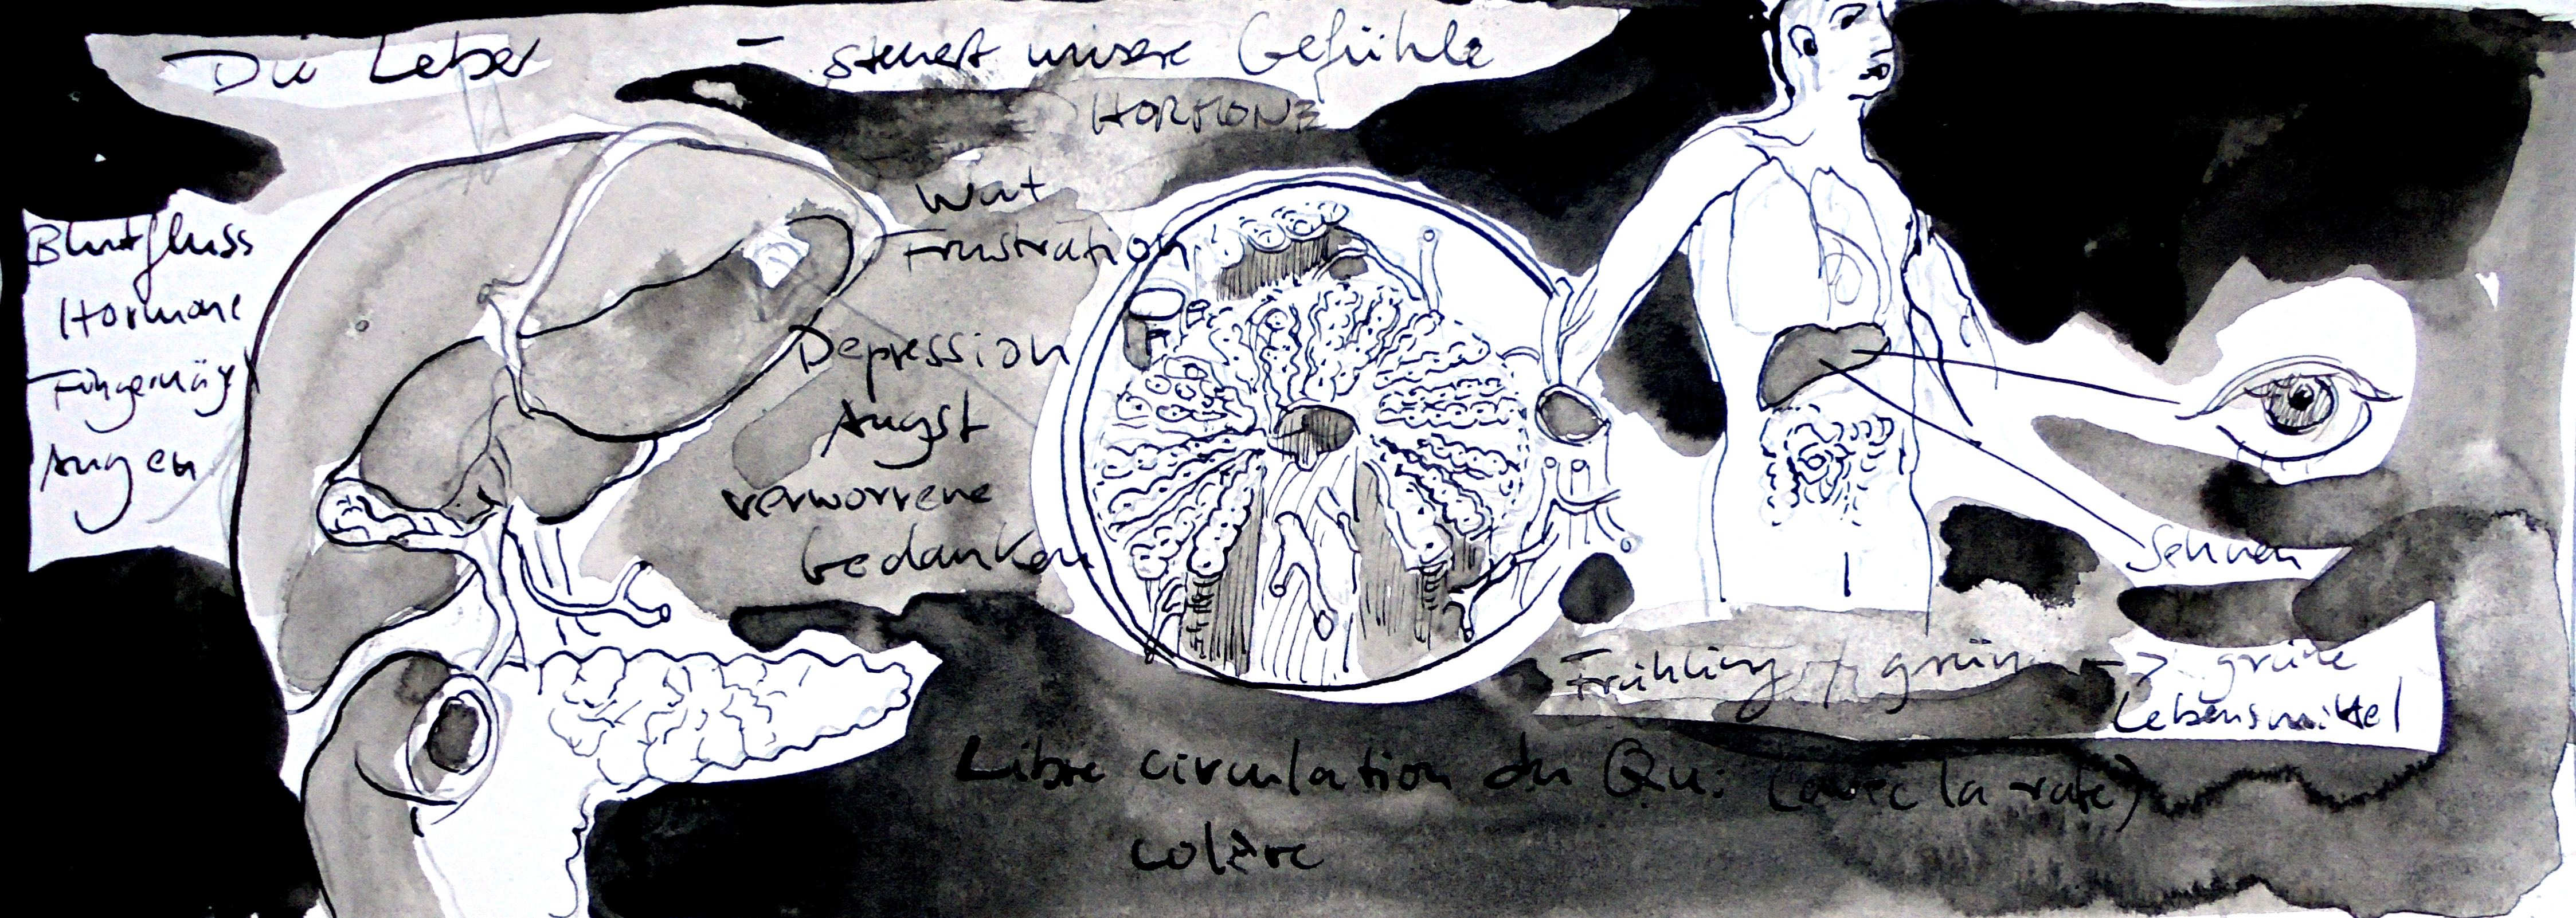 Die Leber – steuert unsere Gefühle
HORMONE
Wut
Frustration
Depression
Angst
verworrene
Gedanken
Blutfluss
Hormone
Fingernägel
Augen
Sehnen
Frühling / grün -> grüne
Lebensmittel
Libre circulation du Qu: (avec la rate)
colère